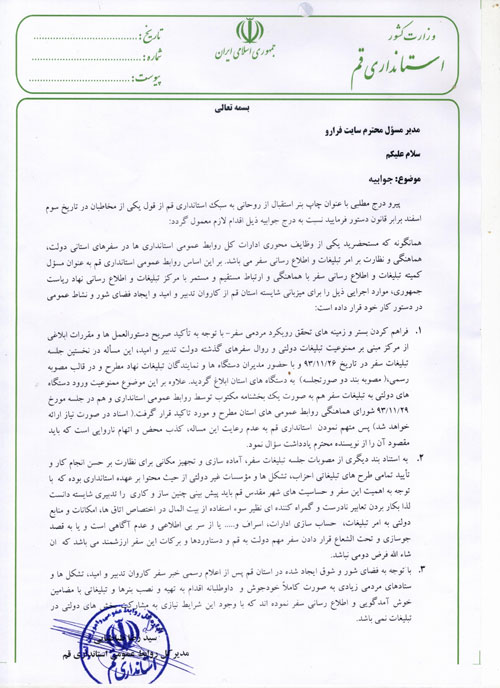 وزارت کشور
استانداری قم
جمهوری اسلامی ایران
تاریخ:
شماره:
پیوست:
بسمه تعالی
مدیر مسؤل محترم سایت فرارو
سلام علیکم
موضوع: جوابیه
پیرو درج مطلبی با عنوان چاپ بنر استقبال از روحانی به سبک استانداری قم از قول یکی از مخاطبان در تاریخ سوم
اسفند برابر قانون دستور فرمایید نسبت به درج جوابیه ذیل اقدام لازم معمول گردد:
همانگونه که مستحضرید یکی از وظایف محوری ادارات کل روابط عمومی استانداری ها در سفرهای استانی دولت،
هماهنگی و نظارت بر امر تبلیغات و اطلاع رسانی سفر می باشد. بر این اساس روابط عمومی استانداری قم به عنوان مسؤل
کمیته تبلیغات و اطلاع رسانی سفر با هماهنگی و ارتباط مستقیم و مستمر با مرکز تبلیغات و اطلاع رسانی نهاد ریاست
جمهوری، موارد اجرایی ذیل را برای میزبانی شایسته استان قم از کاروان تدبیر و امید و ایجاد فضای شور و نشاط عمومی
در دستور کار خود قرار داده است:
۱. فراهم کردن بستر و زمینه های تحقق رویکرد مردمی سفر- با توجه به تأکید صریح دستورالعمل ها و مقررات ابلاغی
از مرکز مبنی بر ممنوعیت تبلیغات دولتی و روال سفرهای گذشته دولت تدبیر و امید، این مسأله در نخستین جلسه
تبلیغات سفر در تاریخ ۹۳/۱۱/۲۶ و با حضور مدیران دستگاه ها و نمایندگان تبلیغات نهاد مطرح و در قالب مصوبه
رسمی،( مصوبه بند دو صورتجلسه) به دستگاه های استان ابلاغ گردید. علاوه بر این موضوع ممنوعیت ورود دستگاه
های دولتی به تبلیغات سفر هم به صورت یک بخشنامه مکتوب توسط روابط عمومی استانداری و هم در جلسه مورخ
۹۳/۱۱/۲۹ شورای هماهنگی روابط عمومی های استان مطرح و مورد تاکید قرار گرفت.( اسناد در صورت نیاز ارائه
خواهد شد) پس متهم نمودن استانداری قم به عدم رعایت این مساله، کذب محض و اتهام ناروایی است که باید
مقصود آن را از نویسنده محترم یادداشت سؤال نمود.
۲. به استناد بند دیگری از مصوبات جلسه تبلیغات سفر، آماده سازی و تجهیز مکانی برای نظارت بر حسن انجام کار و
تأیید تمامی طرح های تبلیغاتی احزاب، تشکل ها و مؤسسات غیر دولتی از حیث محتوا بر عهده استانداری بوده که با
توجه به اهمیت این سفر و حساسیت های شهر مقدس قم باید پیش بینی چنین ساز و کاری را تدبیری شایسته دانست
لذا بکار بردن تعابیر نادرست و گمراه کننده ای نظیر سوء استفاده از بیت المال در اختصاص اتاق ها، امکانات و منابع
دولتی به امر تبلیغات، حساب سازی ادارات، اسراف و..... یا از سر بی اطلاعی و عدم آگاهی است و یا به قصد
جوسازی و تحت الشعاع قرار دادن سفر مهم دولت به قم و دستاوردها و برکات این سفر ارزشمند می باشد که ان
شاء الله فرض دومی نباشد.
۳. با توجه به فضای شور و شوق ایجاد شده در استان قم پس از اعلام رسمی خبر سفر کاروان تدبیر و امید، تشکل ها و
ستادهای مردمی زیادی به صورت کاملاً خودجوش و داوطلبانه اقدام به تهیه و نصب بنرها و تبلیغاتی با مضامین
خوش آمدگویی و اطلاع رسانی سفر نموده اند که با وجود این شرایط نیازی به مشارکت های دولتی در
تبلیغات نمی باشد.
سید
مدیر کل روابط عمومی استانداری قم
استانداری قم